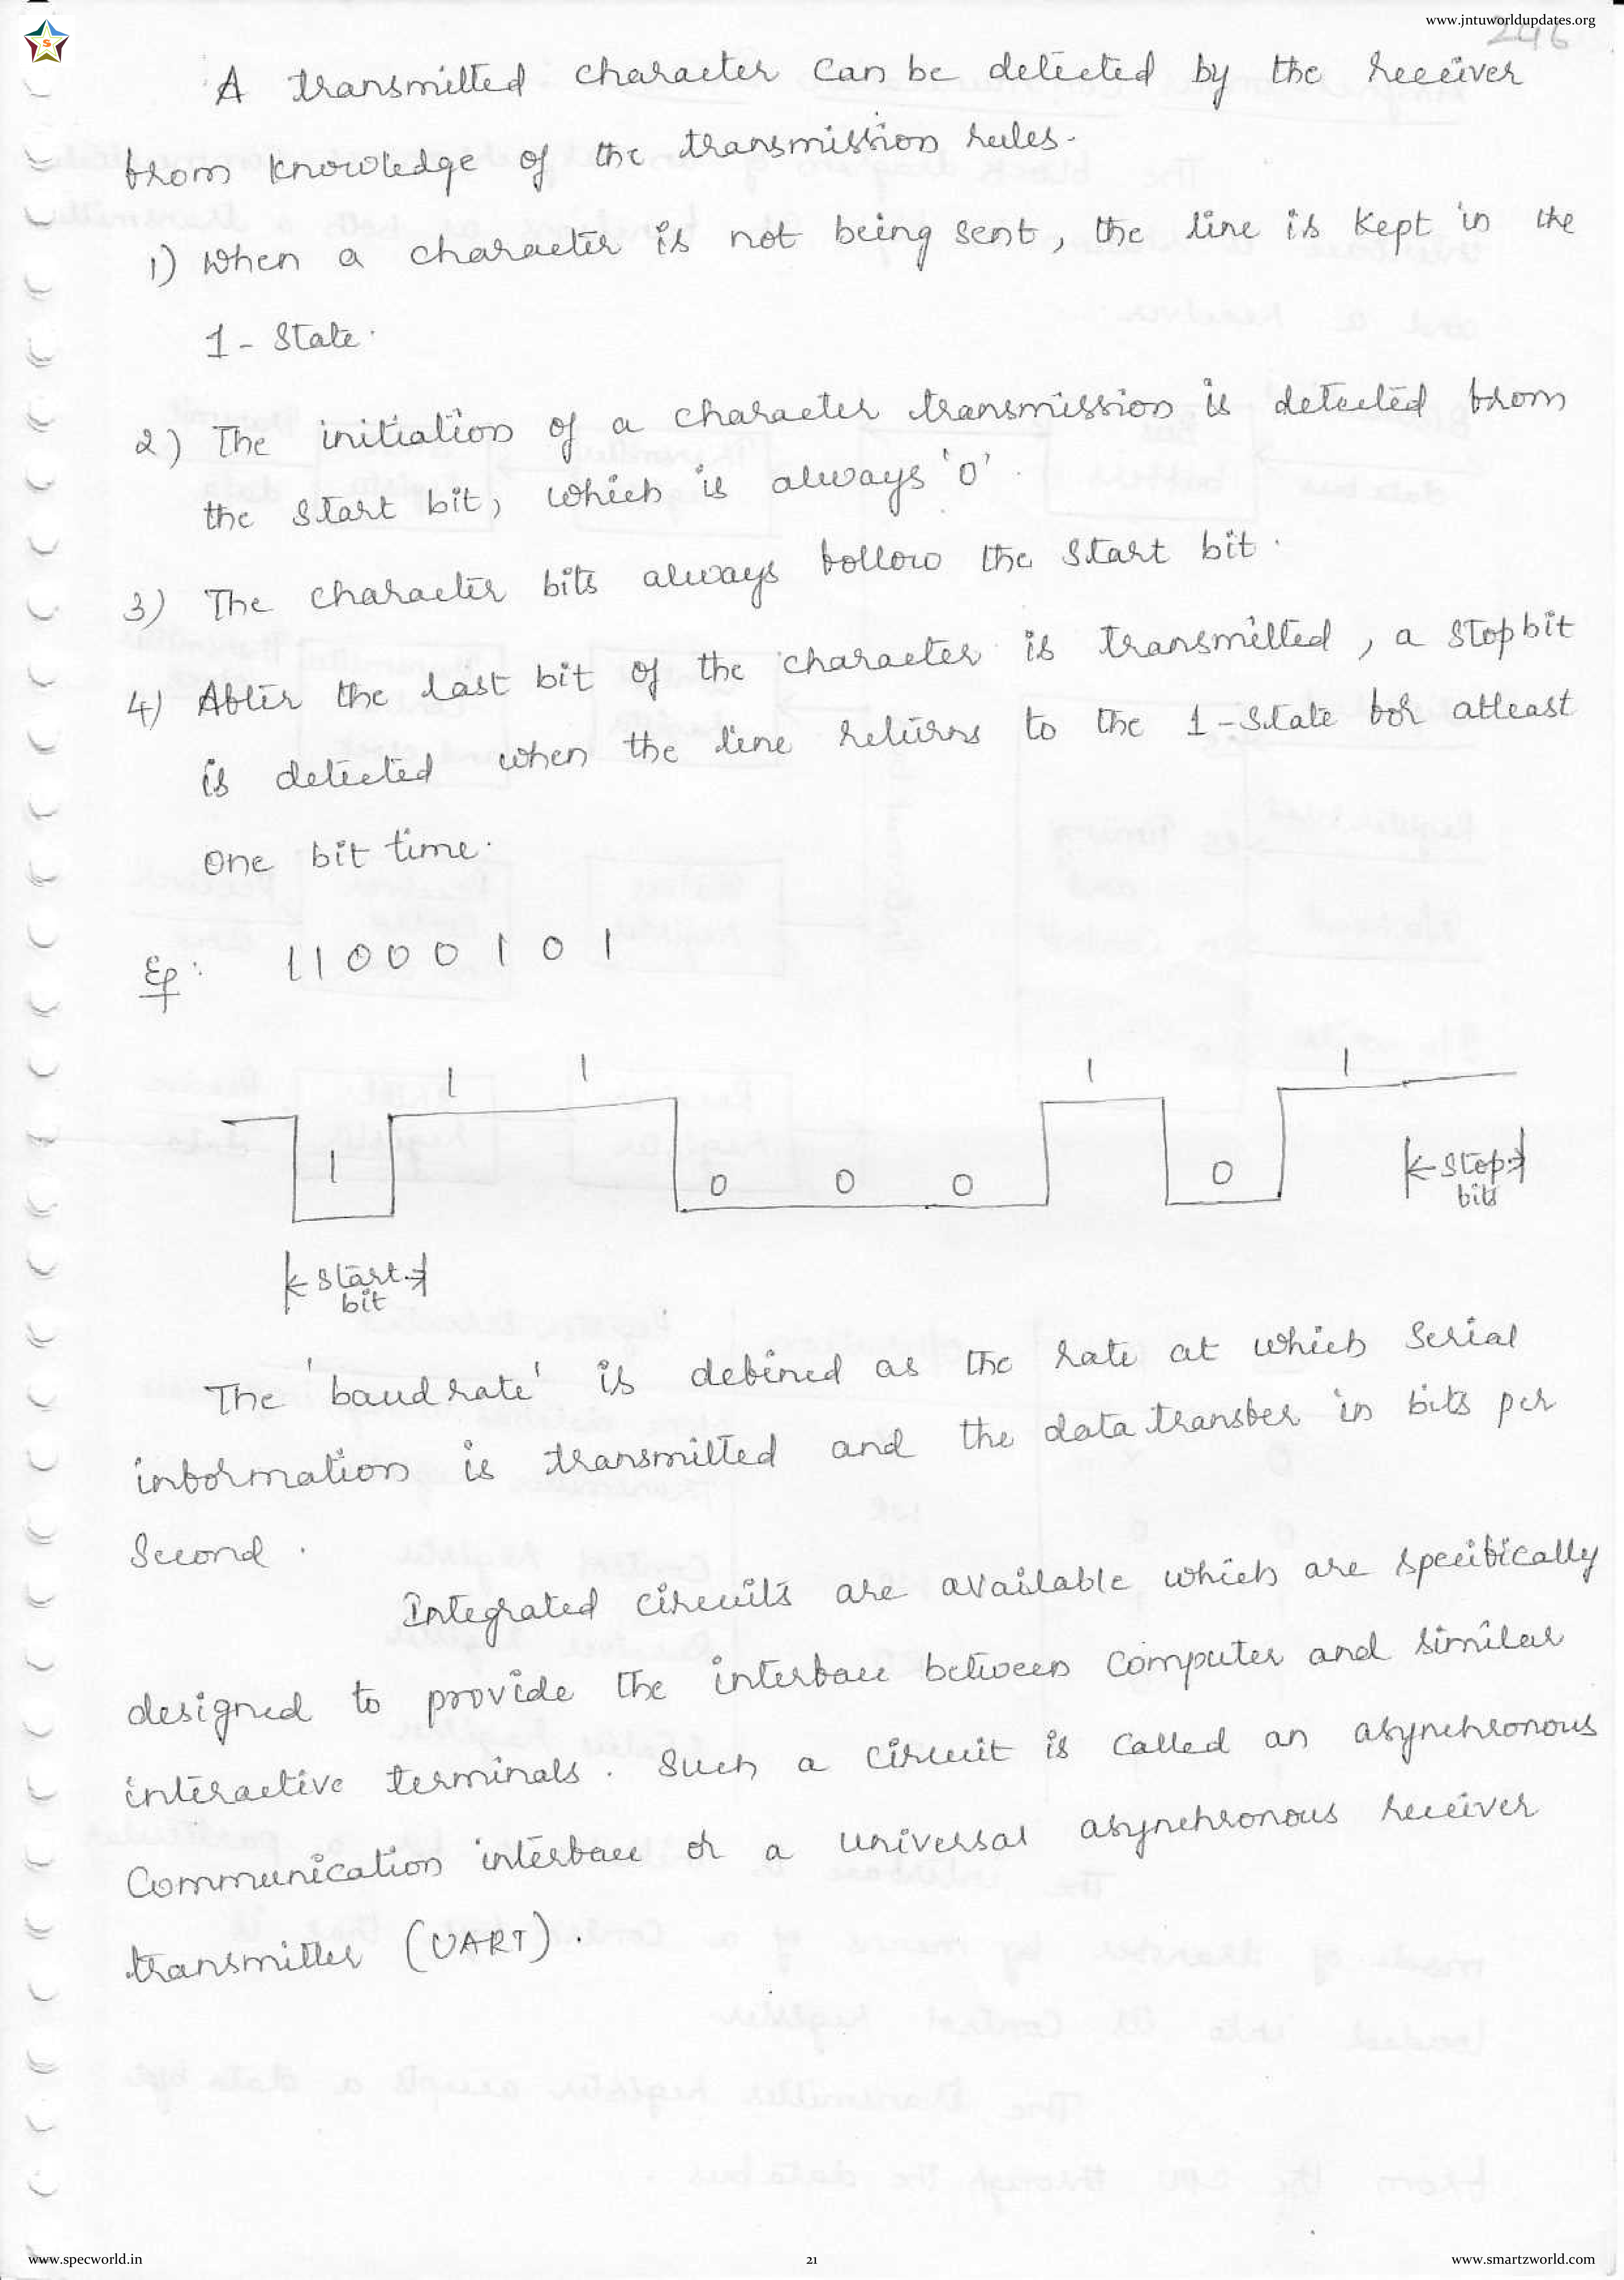 www.jntuworldupdates.org
246
A transmitted character can be detected by the receiver
from knowledge of the transmission rules.
1) When a character is not being sent, the line is kept in the
1 - State.
2) The initiation of a character transmission is detected from
the start bit, which is always '0'.
3) The character bits always follow the start bit.
4) After the last bit of the character is transmitted, a stop bit
is detected when the line returns to the 1-State for atleast
one bit time.
Ep: 1 1 0 0 0 1 0 1
1 1 1 1
1 0 0 0 0
Stop bits
Start bit
The 'baud rate' is defined as the rate at which serial
information is transmitted and the data transfer in bits per
Second.
Integrated circuits are available which are specifically
designed to provide the interface between computer and similar
interactive terminals. Such a circuit is called an asynchronous
Communication interface or a universal asynchronous receiver
transmitter (UART).
www.specworld.in
21
www.smartzworld.com